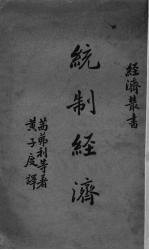 經濟叢書
統制經濟
葛弗利等著
黃子度譯